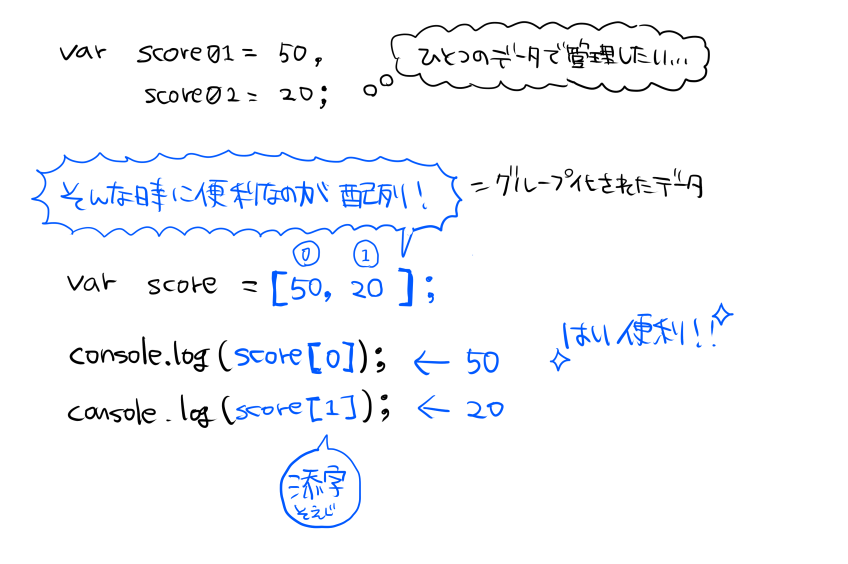 var score01 = 50,
score02 = 20;
ひとつのデータで管理したい...
そんな時に便利なのが配列!
=グループ化されたデータ
0 1
var score = [50, 20];
console.log(score[0]); ← 50
console.log(score[1]); ← 20
はい便利!!
添字
そえじ